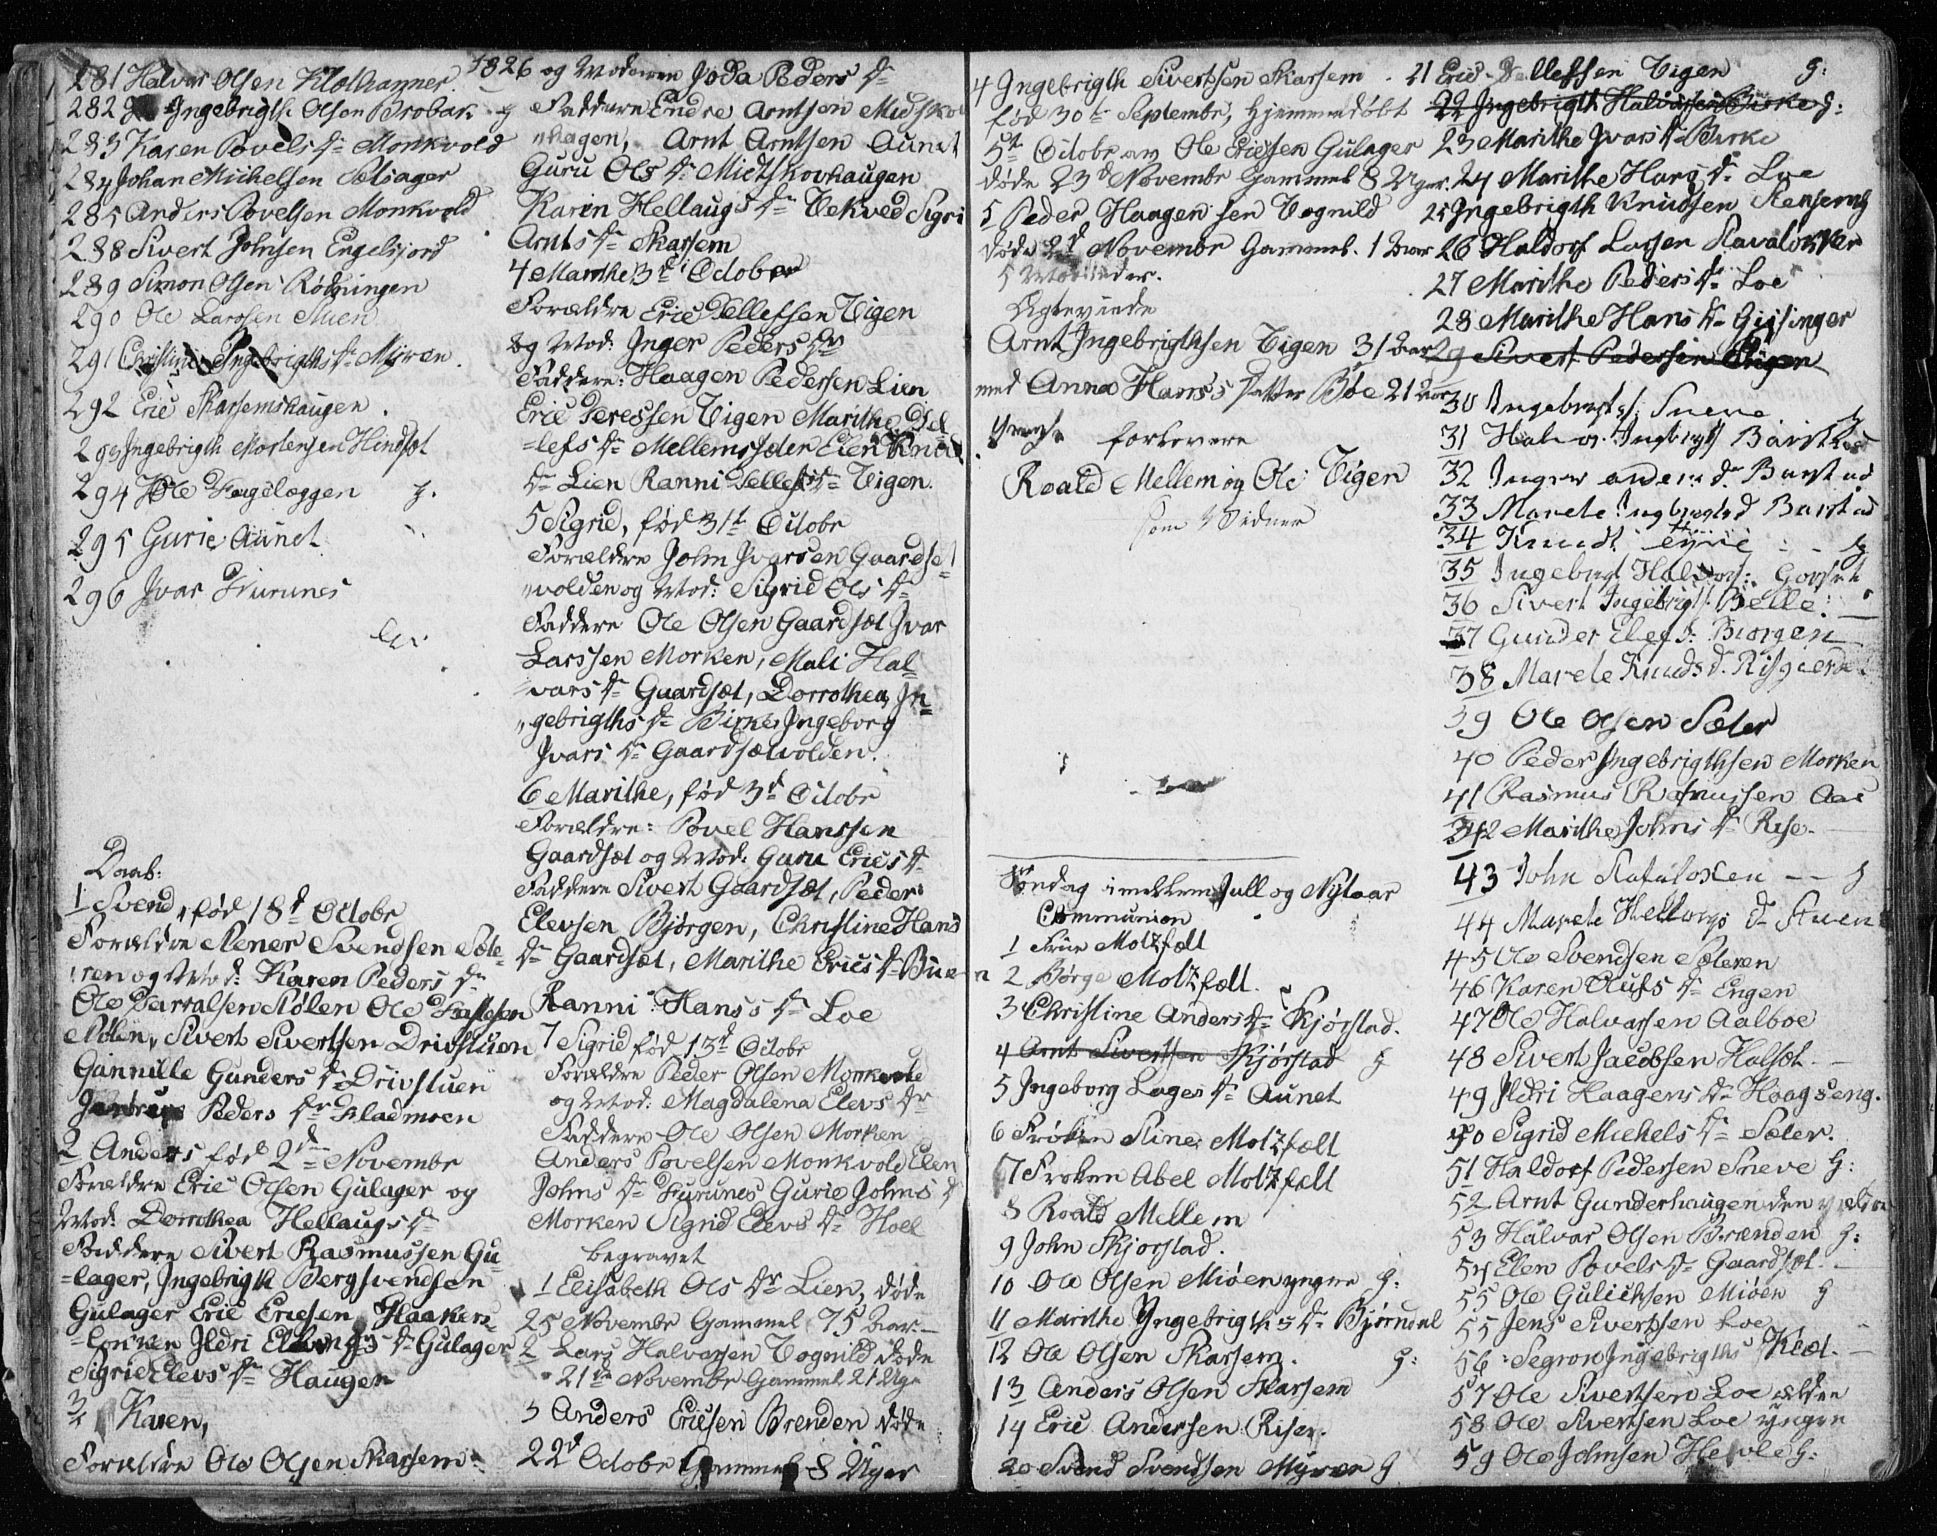 281 Halvor Olsen Klokhammer.
282 Ingebrigth Olsen Brobak
283 Karen Povels Dr Monkvold
284 Johan Michelsen Sæteager
285 Anders Povelsen Monkvold
288 Sivert Johnsen Engelsjord
289 Simon Olsen Röhningen
290 Ole Larssen Stuen
291 Christine Ingebrigths Dr Myren.
292 Eric Skarsemshaugen.
293 Ingebrigth Mortensen Hindset
294 Ole Fagelæggen g.
295 Gurie Aunet
296 Ivar Furunes
Daab:
1 Svend, fød 18d Octobr
Forældre Stener Svendsen Sæte-
ren og Mod: Karen Peders Dr
Ole Stølen Ole
Stølen, Sivert Sivertsen Drivstuen
Gunnille Gunders Dr Drivstuen
Peders Dr Fladmoen
2 Anders fød 2d Novembr
Forældre Eric Olsen Gulager og
Mod: Dorrothea Hellaugs Dr
Faddere Sivert Rasmussen Gu-
-lager, Ingebrigth Bergsvendsen
Gulager Eric Ericsen Haaker-
Ildri Dr Gulager
Sigrie Elevs Dr Haugen
3 Karen,
Forældre Ole Olsen Skarsem
1826 og Moderen Joda Peders Dr
Faddere Endre Arntsen Midtsko
-hagen, Arnt Arntsen Aunet
Guru Ols Dr Midtskovhaugen
Karen Hellaugs Dr Vekved Sigri
Arnts Dr Skarsem
4 Marithe 3d October
Forældre Eric Dellefsen Vigen
og Mod: Inger Peders Dr
Faddere: Haagen Pedersen Lien
Eric Deressen Vigen Marithe Del-
=lefs Dr Mellemsæter Elen Knud
Dr Lien Ranni Dellefs Dr Vigen.
5 Sigrid, fød 31t Octobr
Forældre John Ivarsen Gaardsæ-
volden og Mod: Sigrid Ols Dr
Faddere Ole Olsen Gaardsæt Ivar
Larssen Morken, Mali Hal-
vars Dr Gaardsæt, Dorrothea In-
gebrigths Dr Birke Ingeborg
Ivars Dr Gaardsætvolden.
6 Marithe, fød 3d Octobr
Forældre: Povel Hanssen
Gaardsæt og Mod: Guru Erics Dr
Faddere Sivert Gaardsæt, Peder
Elevsen Bjørgen, Christine Hans
Dr Gaardsæt, Marithe Erics Dr Buen
Ranni Hans's Dr Loe
7 Sigrid fød 13d Octobr
Forældre Peder Olsen Monkvold
og Mod: Magdalena Elevs Dr
Faddere Ole Olsen Morken
Anders Povelsen Monkvold Elen
Johns Dr Furunes Gurie Johns D
Morken Sigrid Elevs Dr Hoel
begravet
1 Elisabeth Ols Dr Lien, døde
25 Novembr Gammel 75 Aar.
2 Lars Halvorsen Vognild døde
21de Novembr Gammel 21 Uge
3 Anders Ericsen Brenden døde
22d Octobr Gammel 8 Uger
4 Ingebrigth Sivertsen Skarsem.
fød 30te Septembr, Hjemmedøbt
5t Octobr av Ole Ericsen Gulager
døde 23d Novembr Gammel 8 Uger.
5 Peder Haagensen Vognild
døde 2d Novembr Gammel. 1 Aar
5 Maaneder.
Ægteviede
Arnt Ingebrigthsen Vigen 31 Aar
med Anna Hans's Datter Bøe 21 Aar
forlovere
Roald Mellem og Ole Vigen
som Vidner
Søndag imellem Jull og Nytaar
Communion
1 Frue Motzfælt
2 Børge Motzfælt.
3 Christine Anders Dr Skjørstad.
4 Arnt Sivertsen Skjørstad g
5 Ingeborg Lages Dr Aunet
6 Frøken Stine Motzfælt
7 Frøken Abel Motzfælt
8 Roald Mellem
9 John Skjørstad.
10 Ole Olsen Miøen yngre g:
11 Marithe Ingebrigths Dr Bjørndal
12 Ole Olsen Skarsem. g:
13 Anders Olsen Skarsem
14 Eric Andersen Risen.
20 Svend Svendsen Myren g
21 Eric Dellefsen Vigen g:
22 Ingebrigth Halvorsen Birke g:
23 Marithe Ivars Dr Birke
24 Marithe Hans Dr Loe
25 Ingebrigth Knudsen Stensem
26 Haldorf Larsen Ravaløkken
27 Marithe Peders Dr Loe
28 Marithe Hans Dr Gissinger
29 Sivert Pedersen Vigen
30 Ingebrigt Sneve
31 Halvor Ingbrigt Barstad
32 Inger anders d. Barstad
33 Marete Ingbrigts d Barstad
34 Knudt g
35 Ingebrigt Haldors: Gorset
36 Sivert Ingebrigts Belle:
37 Gunder Elefs: Biørgen
38 Marete Knuds d. Risgierdet
39 Ole Olsen Sæter
40 Peder Ingebrigthsen Morken
41 Rasmus Rasmussen Aas
42 Marithe Johns Dr Rise.
43 John Rafaløken g
44 Marete Hellaugs D Stuen
45 Ole Svendsen Sæteren
46 Karen Olufs Dr Engen
47 Ole Halvorsen Aalboe
48 Sivert Jacobsen Halsæt.
49 Ildri Haagens Dr Haagseng.
50 Sigrid Michels Dr Sæter.
51 Haldorf Pedersen Sneve g:
52 Arnt Gunderhaugen den yngre
53 Halvar Olsen Brænden g:
54 Elen Povels Dr Gaardsæt.
55 Ole Gulichsen Miøen g
55 Jens Sivertsen Loe
56 Segron Ingebrigths
57 Ole Sivertsen Loe ældre
58 Ole Sivertsen Loe yngre
59 Ole Johnsen Hevle g: